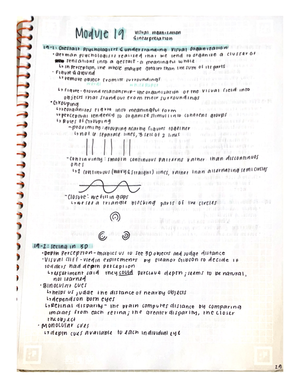 Module 19 Visual Organization
& Interpretation
19-1: Gestalt Psychologists & Understanding Visual Organization
-German psychologists realised that we tend to organize a cluster of
sensations into a gestalt - a meaningful whole
↳In perception, the whole may be greater than the sum of its parts
-Figure Ground
object from its surroundings
-Figure-ground relationship - the organization of the visual field into
objects that stand out from their surroundings
-Grouping
into meaningful form
-Perceptual tendency to organize stimuli into coherent groups
-Rules of Grouping
-Proximity - grouping nearby figures together
↳not 6 separate lines, 3 sets of 2 lines
-Continuity - smooth continuous patterns rather than discontinuous
ones
↳2 continuous (wavy & straight) lines, rather than alternating semicircles
-Closure - we fill in gaps
↳we see a triangle blocking parts of the circles
19-2: Seeing in 3D
-Depth Perception - enables us to see 3D objects and judge distance
-Visual Cliff - by Eleanor Gibson to decide if
infants had depth perception
↳Experiment said they could perceive depth; seems to be natural,
not learned
-Binocular Cues
↳helps us judge the distance of nearby objects
↳depend on both eyes
↳Retinal disparity - the brain computes distance by comparing
images from each retina; the greater disparity, the closer
the object
-Monocular Cues
↳depth cues available to each individual eye